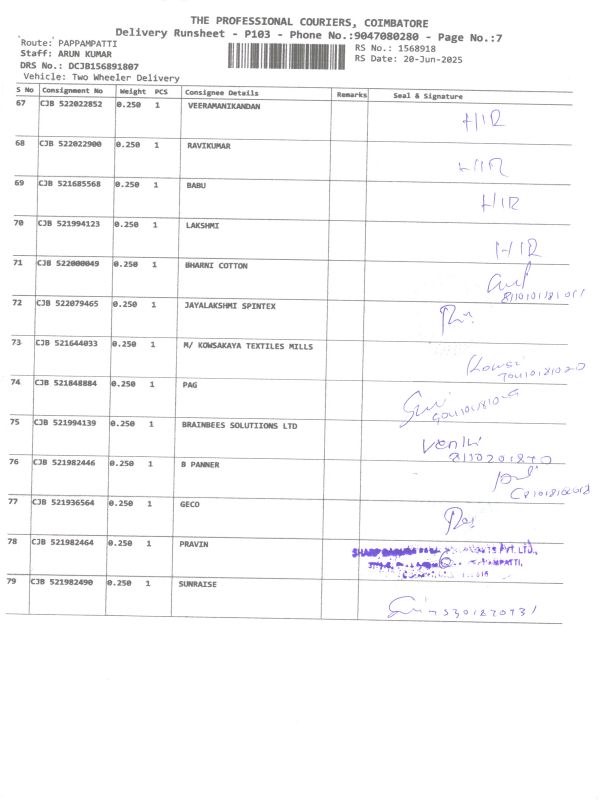 THE PROFESSIONAL COURIERS, COIMBATORE
Delivery Runsheet - P103 - Phone No.:9047080280 - Page No.:7
Route: PAPPAMPATTI
RS No.: 1568918
Staff: ARUN KUMAR
RS Date: 20-Jun-2025
DRS No.: DCJB156891807
Vehicle: Two Wheeler Delivery
S No Consignment No Weight PCS Consignee Details Remarks Seal & Signature
67 CJB 522022852 0.250 1 VEERAMANIKANDAN
H/R
68 CJB 522022900 0.250 1 RAVIKUMAR
H/R
69 CJB 521685568 0.250 1 BABU
H/R
70 CJB 521994123 0.250 1 LAKSHMI
H/R
71 CJB 522000049 0.250 1 BHARNI COTTON
72 CJB 522079465 0.250 1 JAYALAKSHMI SPINTEX
73 CJB 521644033 0.250 1 M/ KOWSAKAYA TEXTILES MILLS
74 CJB 521848884 0.250 1 PAG
75 CJB 521994139 0.250 1 BRAINBEES SOLUTIIONS LTD
76 CJB 521982446 0.250 1 B PANNER
77 CJB 521936564 0.250 1 GECO
78 CJB 521982464 0.250 1 PRAVIN
PVT. LTD.,
79 CJB 521982490 0.250 1 SUNRAISE